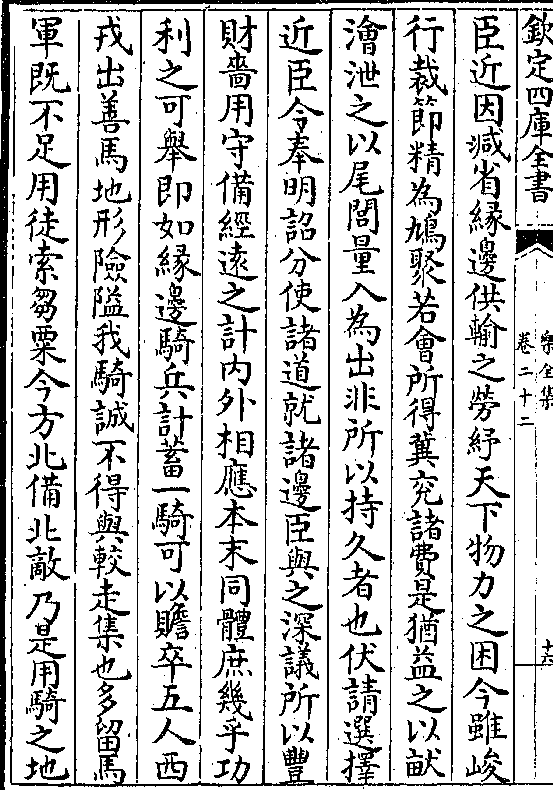 欽定四庫全書
樂全集
卷二十二
十六
臣近因減省緣邊供輸之勞紓天下物力之困今雖峻
行裁節精為鳩聚若會所得冀充諸費是猶益之以畎
澮泄之以尾閭量入為出非所以持久者也伏請選擇
近臣令奉明詔分使諸道就諸邊臣與之深議所以豐
財嗇用守備經遠之計内外相應本末同體庶幾乎功
利之可舉即如緣邊騎兵計蓄一騎可以贍卒五人西
戎出善馬地形險隘我騎誠不得與較走集也多留馬
軍既不足用徒索芻粟今方北備北敵乃是用騎之地